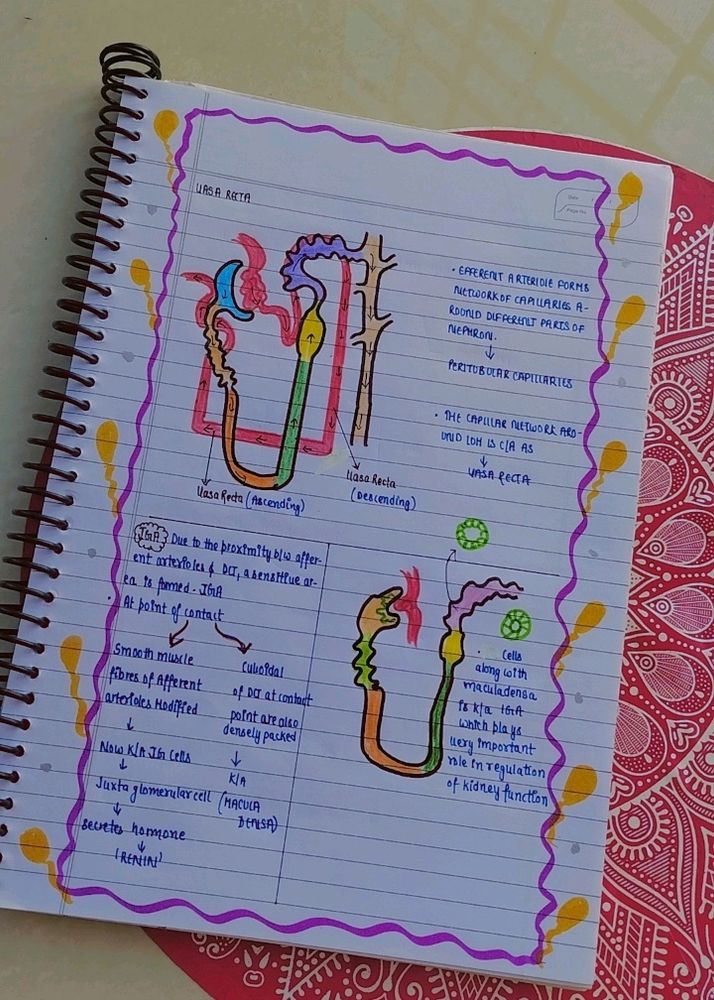 VASA RECTA
Date
Page No.
• EFFERENT ARTERIOLE FORMS
NETWORK OF CAPILLARIES A-
ROUND DIFFERENT PARTS OF
NEPHRON.
↓
PERITUBULAR CAPILLARIES
• THE CAPILLAR NETWORK ARO-
UND LOH IS C/A AS
↓
VASA RECTA
Vasa Recta (Ascending)
Vasa Recta
(Descending)
JGA Due to the proximity b/w affer-
ent arterioles & DCT, a sensitive ar-
ea is formed - JGA
• At point of contact
Smooth muscle
fibres of Afferent
arterioles Modified
↓
Now K/A JG Cells
↓
Juxta glomerular cell
↓
Secretes hormone
↓
'RENIN'
Cuboidal
of DCT at contact
point are also
densely packed
↓
K/A
(MACULA
DENSA)
• Cells
along with
maculadensa
is k/a JGA
which plays
very important
role in regulation
of kidney function